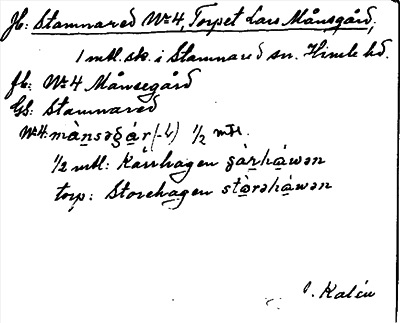 Jb: Stamnared Nr 4, Torpet Lars Månsgård,
1 mtl. sk. i Stamnared sn. Himle hd.
fb: Nr 4 Månsegård
Gs: Stamnared
Nr 4 mànsəgár (-4) 1/2 mtl.
1/2 mtl: Kärrhagen çàrhá̱wən
torp: Storehagen stòrəhá̱wən
Kalén